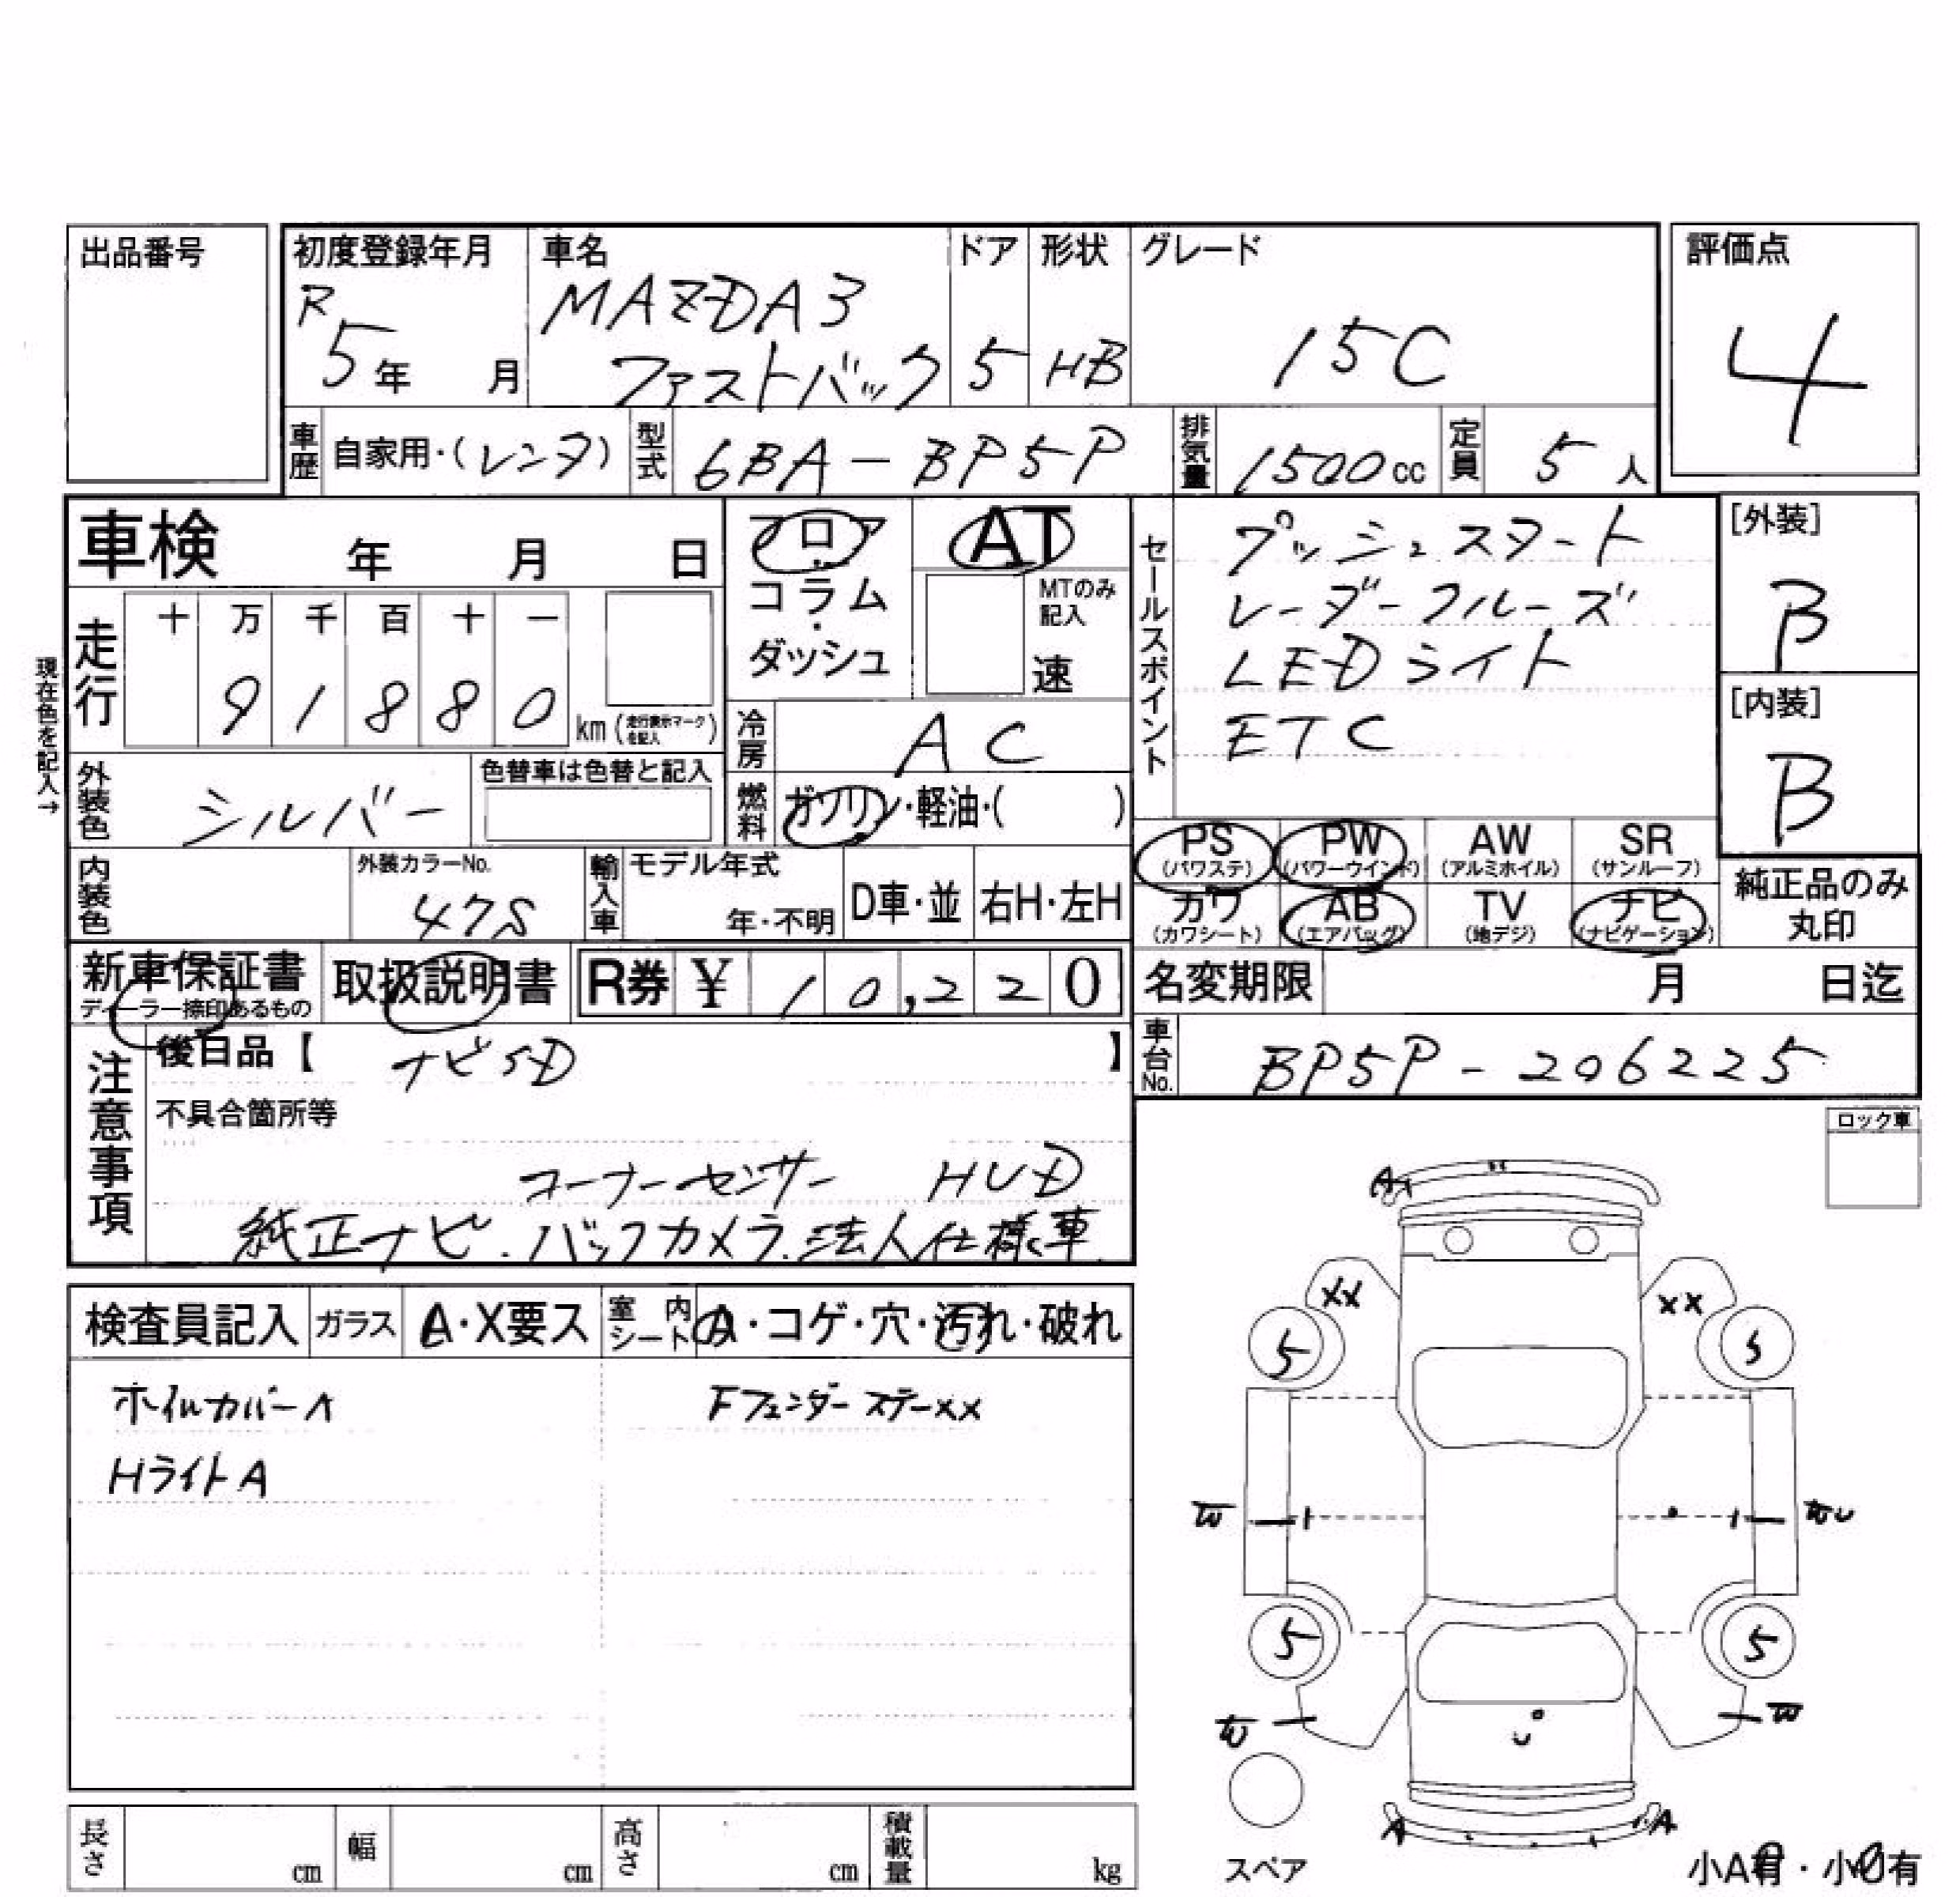 出品番号
初度登録年月
R
5年 月
車名
MAZDA3
ファストバック
ドア
5
形状
HB
グレード
15C
評価点
4
車歴
自家用・(レンタ)
型式
6BA-BP5P
排気量
1500cc
定員
5人
車検 年 月 日
走行
十 万 千 百 十 一
9 1 8 8 0
km(走行表示マークを記入)
現在色を記入→
外装色
シルバー
色替車は色替と記入
内装色
外装カラーNo.
47S
フロア
・
コラム
・
ダッシュ
AT
MTのみ
記入
速
冷房
AC
燃料
ガソリン・軽油・( )
輸入車
モデル年式
年・不明
D車・並
右H・左H
セールスポイント
プッシュスタート
レーダークルーズ
LEDライト
ETC
[外装]
B
[内装]
B
PS
(パワステ)
PW
(パワーウインド)
AW
(アルミホイル)
SR
(サンルーフ)
カワ
(カワシート)
AB
(エアバッグ)
TV
(地デジ)
ナビ
(ナビゲーション)
純正品のみ
丸印
新車保証書
ディーラー捺印あるもの
取扱説明書
R券 ¥ 10,220
名変期限 月 日迄
車台No.
BP5P-206225
注意事項
後日品【 ナビSD 】
不具合箇所等
コーナーセンサー HUD
純正ナビ.バックカメラ.法人仕様車
ロック車
検査員記入
ガラス
A・X要ス
室内シート
A・コゲ・穴・汚れ・破れ
ホイルカバーA
Fフェンダーステーxx
HライトA
A
xx
xx
5
5
5
5
A
A
スペア
小A有・小U有
長さ cm
幅 cm
高さ cm
積載量 kg